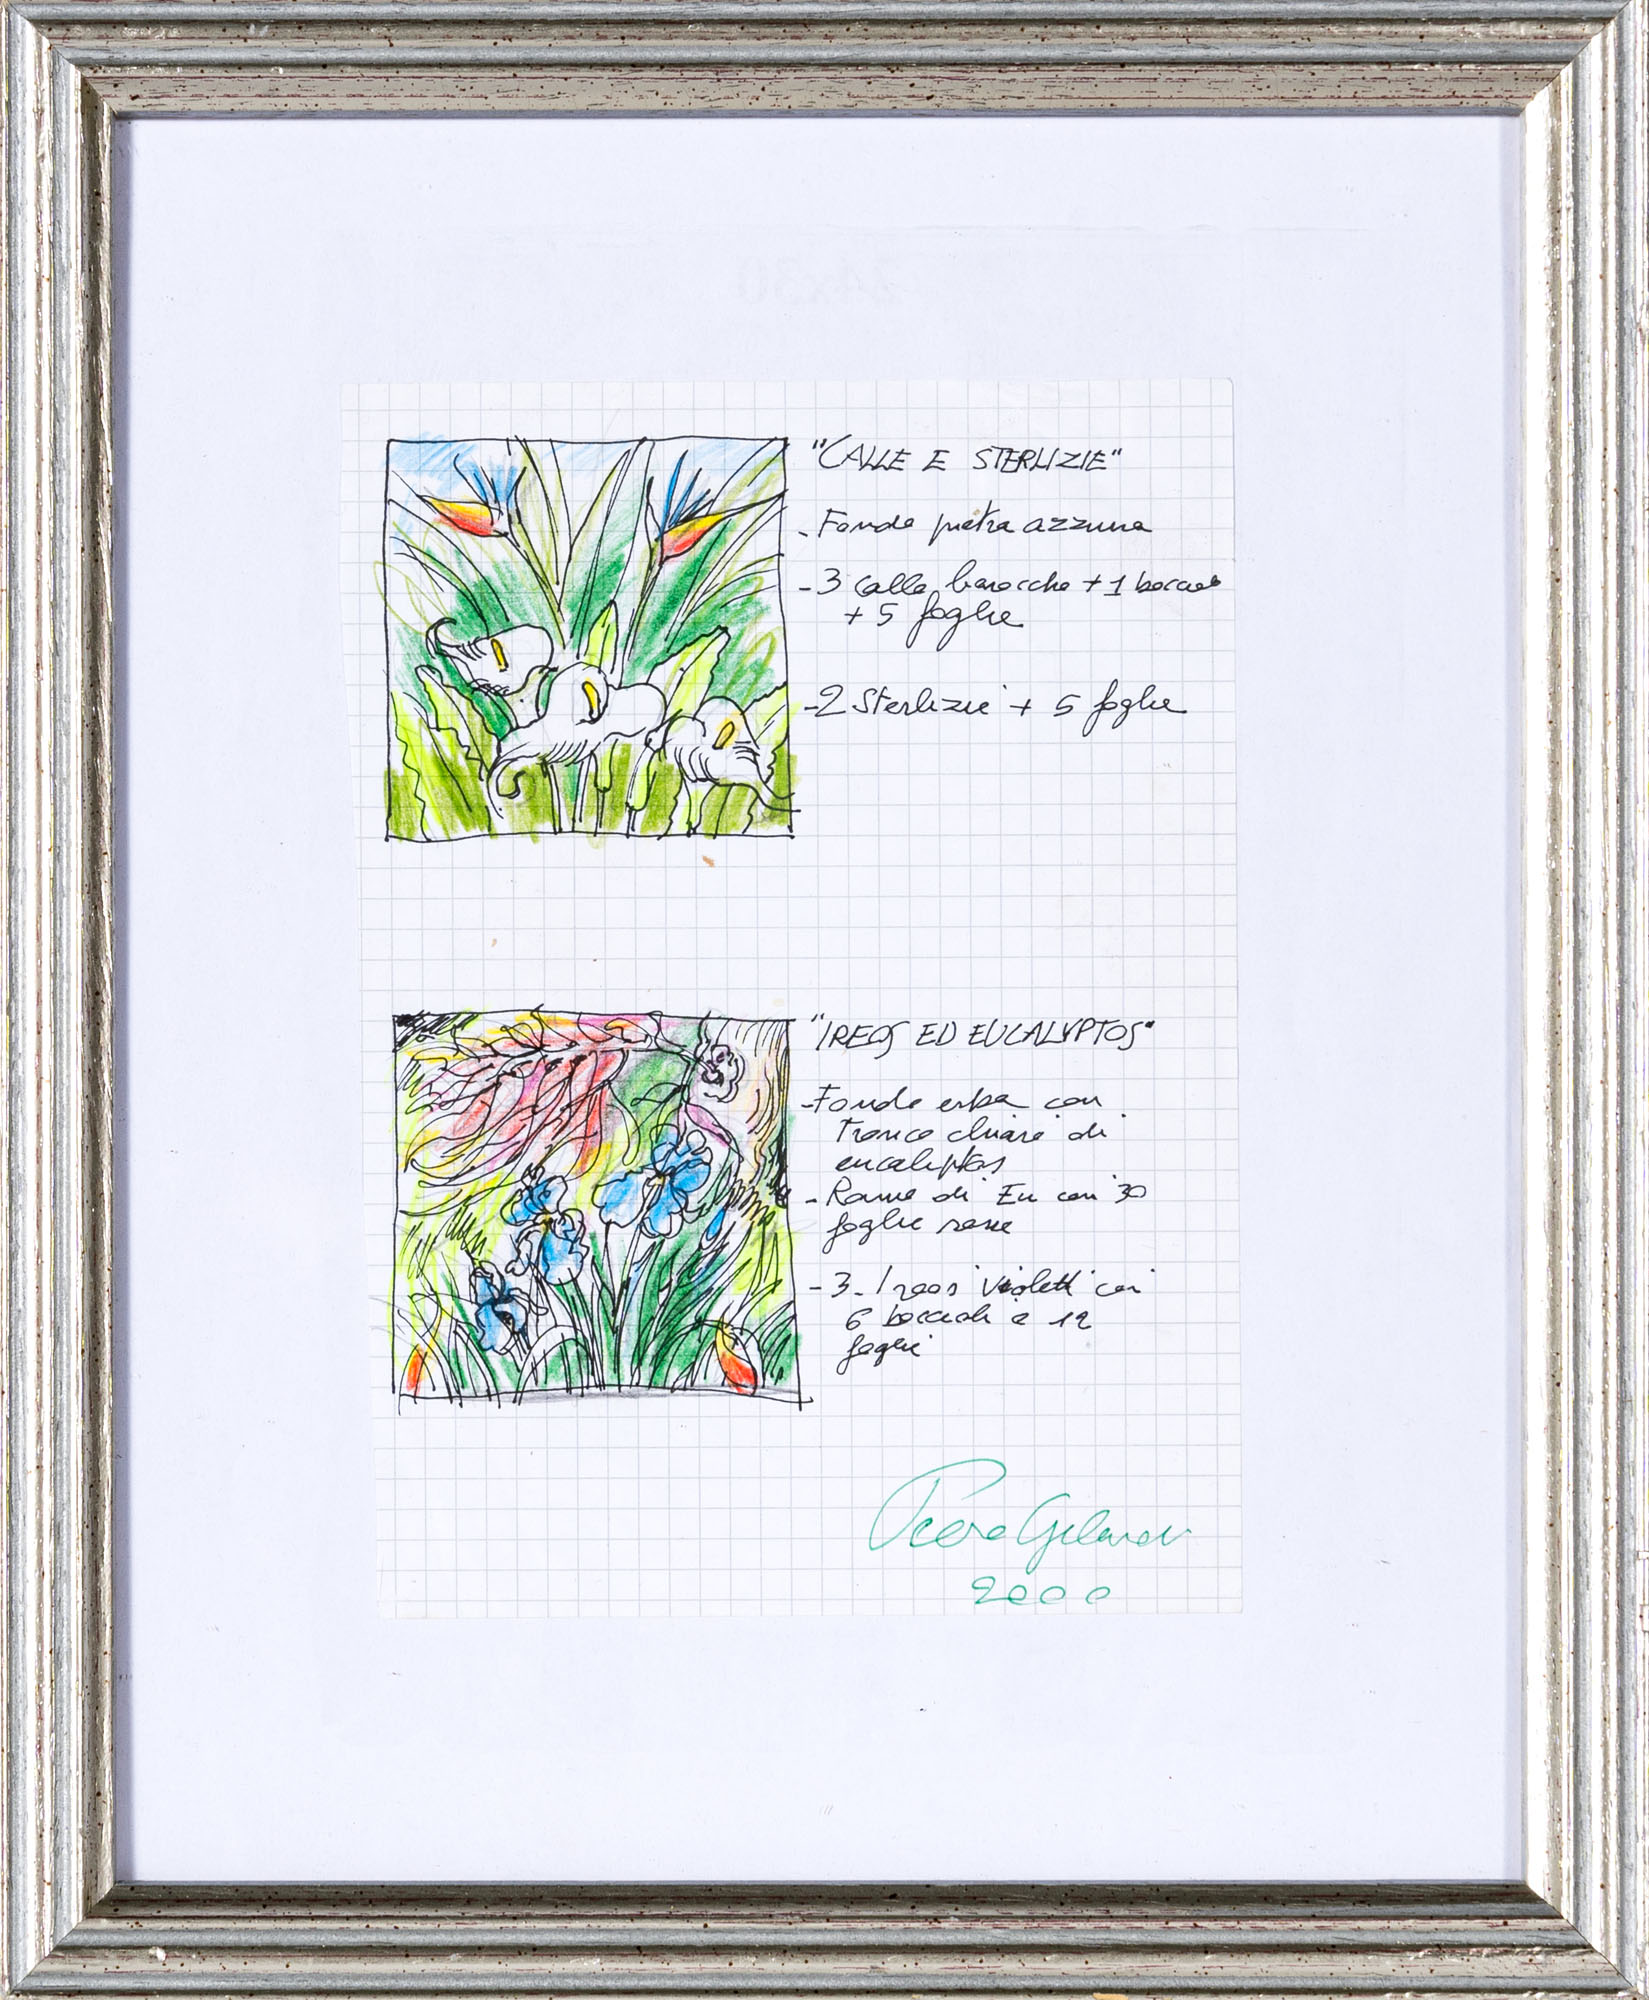 "CALLE E STERLIZIE"
- Fondo pietra azzurra
- 3 calle barocche + 1 boccio
+ 5 foglie
- 2 Sterlizie + 5 foglie
"IREOS ED EUCALYPTOS"
- Fondo erba con
tronco chiaro di
eucaliptos
- Rame di Eu con 30
foglie rosse
- 3 Ireos violetti con
6 boccioli e 12
foglie
Piero Gilardi
2000
24x30